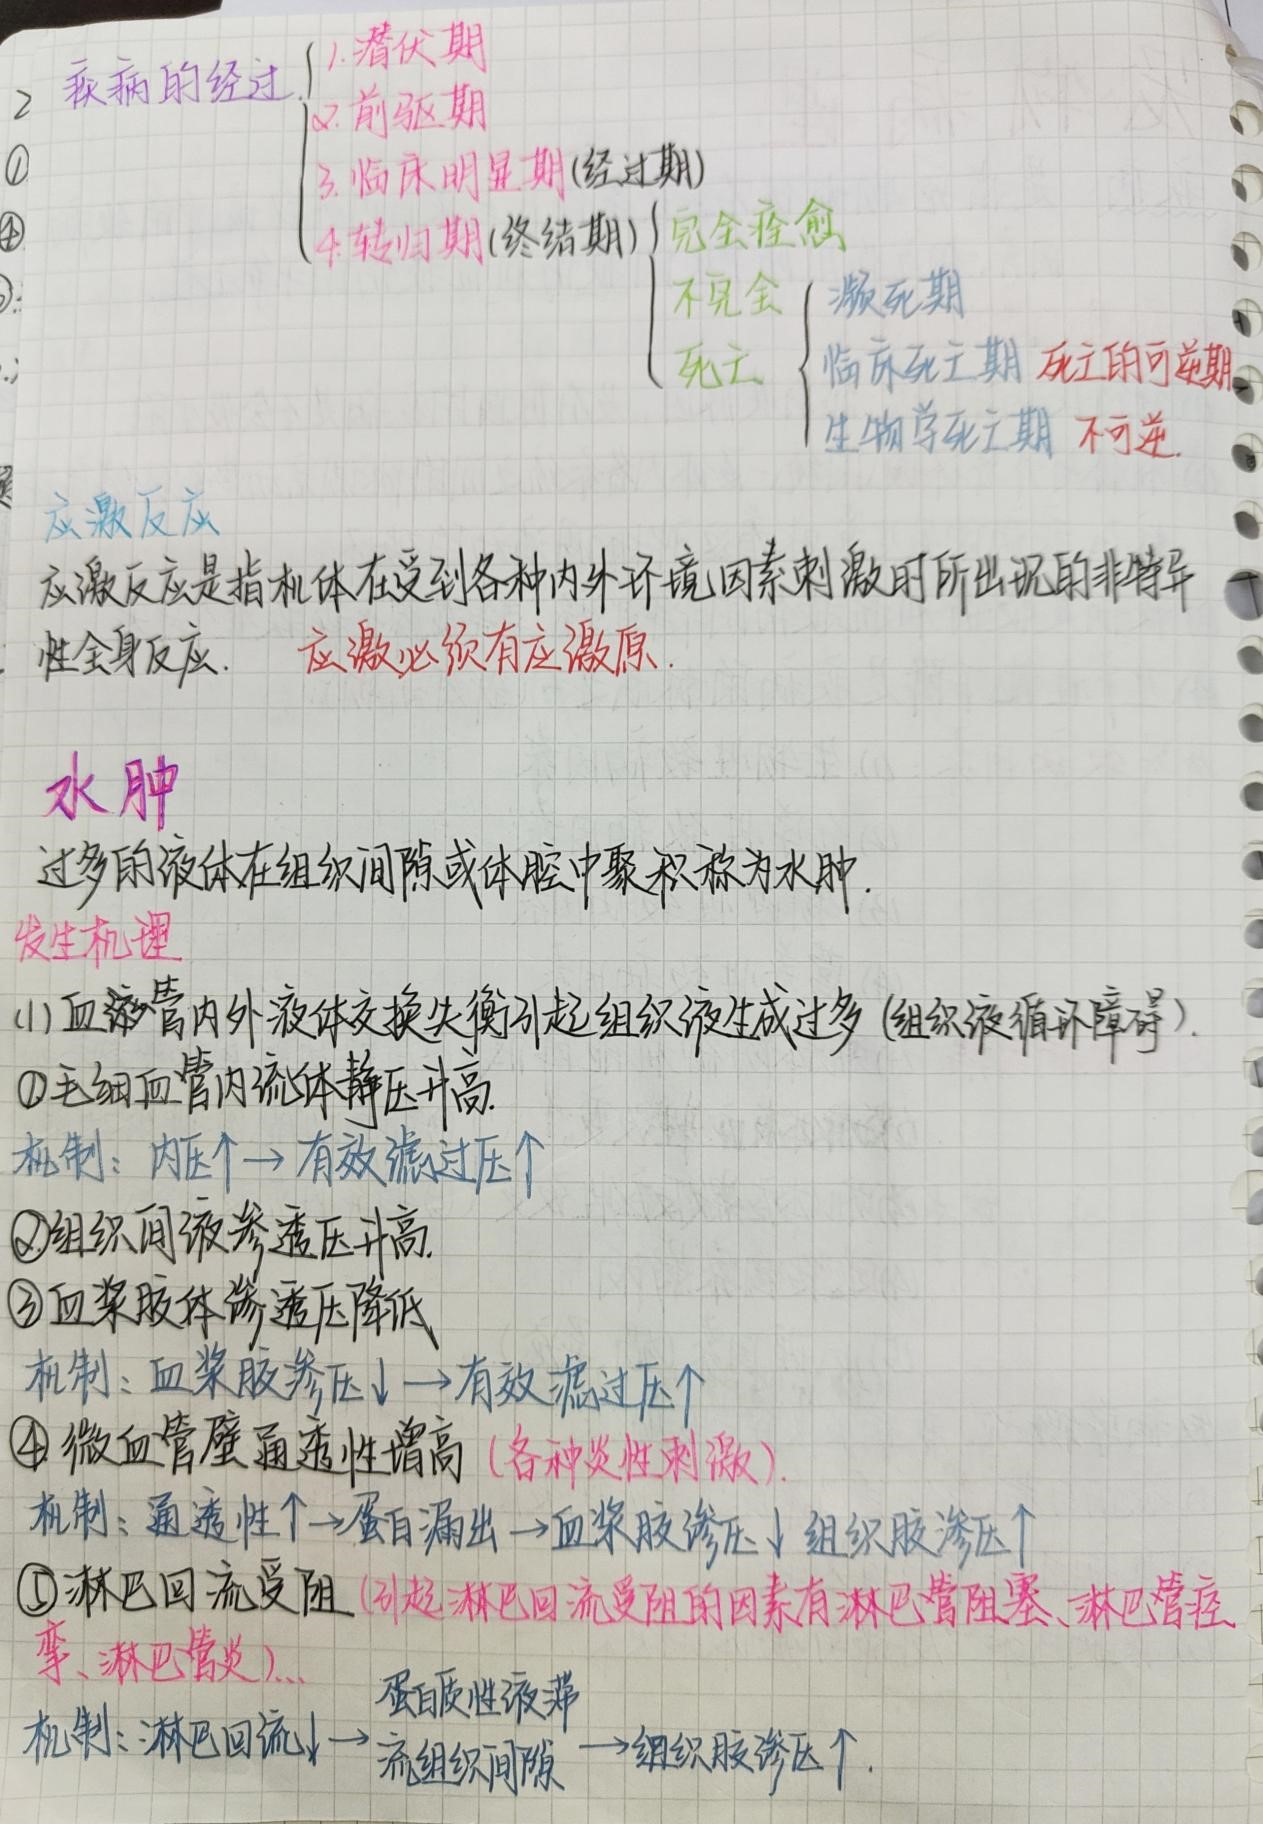 疾病的经过
1.潜伏期
2.前驱期
3.临床明显期(经过期)
4.转归期(终结期)
完全痊愈
不完全
死亡
濒死期
临床死亡期 死亡的可逆期
生物学死亡期 不可逆.
应激反应
应激反应是指机体在受到各种内外环境因素刺激时所出现的非特异
性全身反应. 应激必须有应激原.
水肿
过多的液体在组织间隙或体腔中聚积称为水肿.
发生机理
(1)血管内外液体交换失衡引起组织液生成过多(组织液循环障碍).
①毛细血管内流体静压升高.
机制:内压↑→有效滤过压↑
②组织间液渗透压升高.
③血浆胶体渗透压降低
机制:血浆胶渗压↓→有效滤过压↑
④微血管壁通透性增高(各种炎性刺激).
机制:通透性↑→蛋白漏出→血浆胶渗压↓组织胶渗压↑
⑤淋巴回流受阻(引起淋巴回流受阻的因素有淋巴管阻塞、淋巴管痉
挛、淋巴管炎)...
机制:淋巴回流↓→蛋白质性液滞
流组织间隙→组织胶渗压↑.
2
①
④